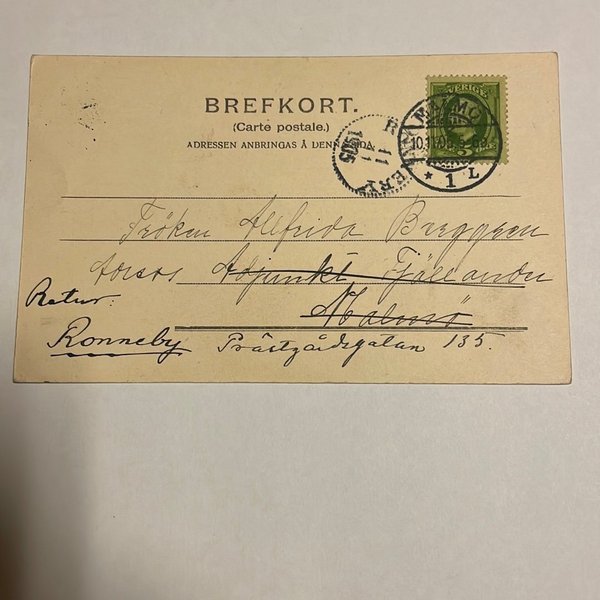 BREFKORT.
(Carte postale.)
ADRESSEN ANBRINGAS Å DENNA SIDA.
SVERIGE
MALMÖ
* 1 L
11
1905
Fröken Allfrida Breggren
Adress Adjunkt Fjällander
Malmö
Retur.
Ronneby Prästgårdsgatan 135.